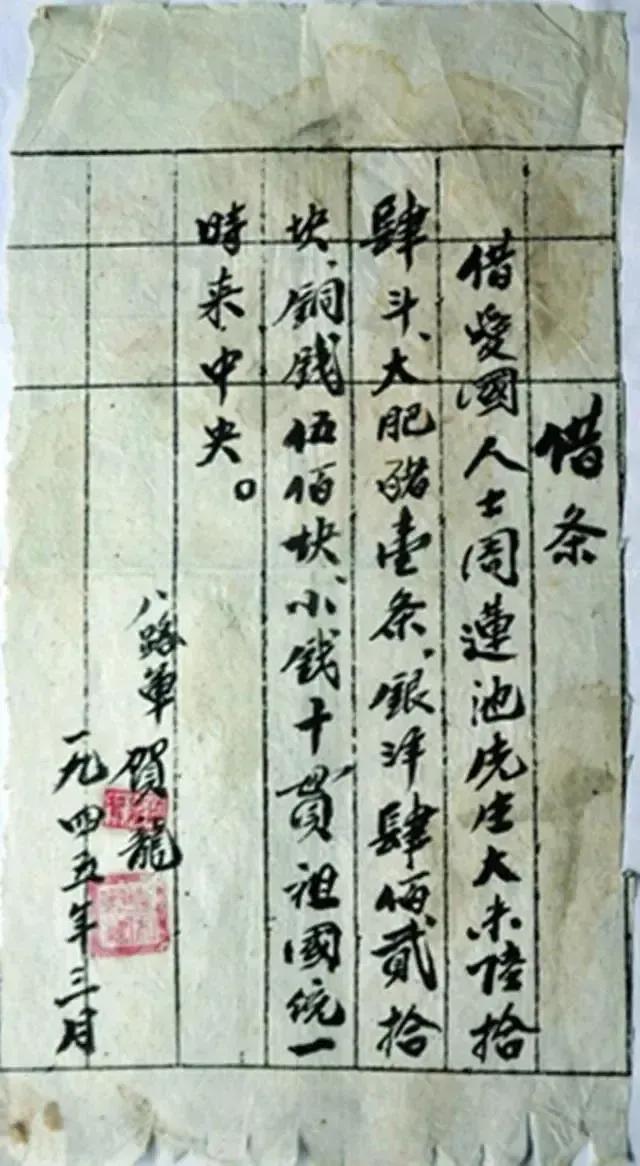 借条
借愛國人士周蓮池先生大米陸拾
肆斗、大肥豬壹条、銀洋肆佰貳拾
块、銅钱伍佰块、小钱十貫祖國统一
時来中央。
八路軍 賀龍
一九四五年三月